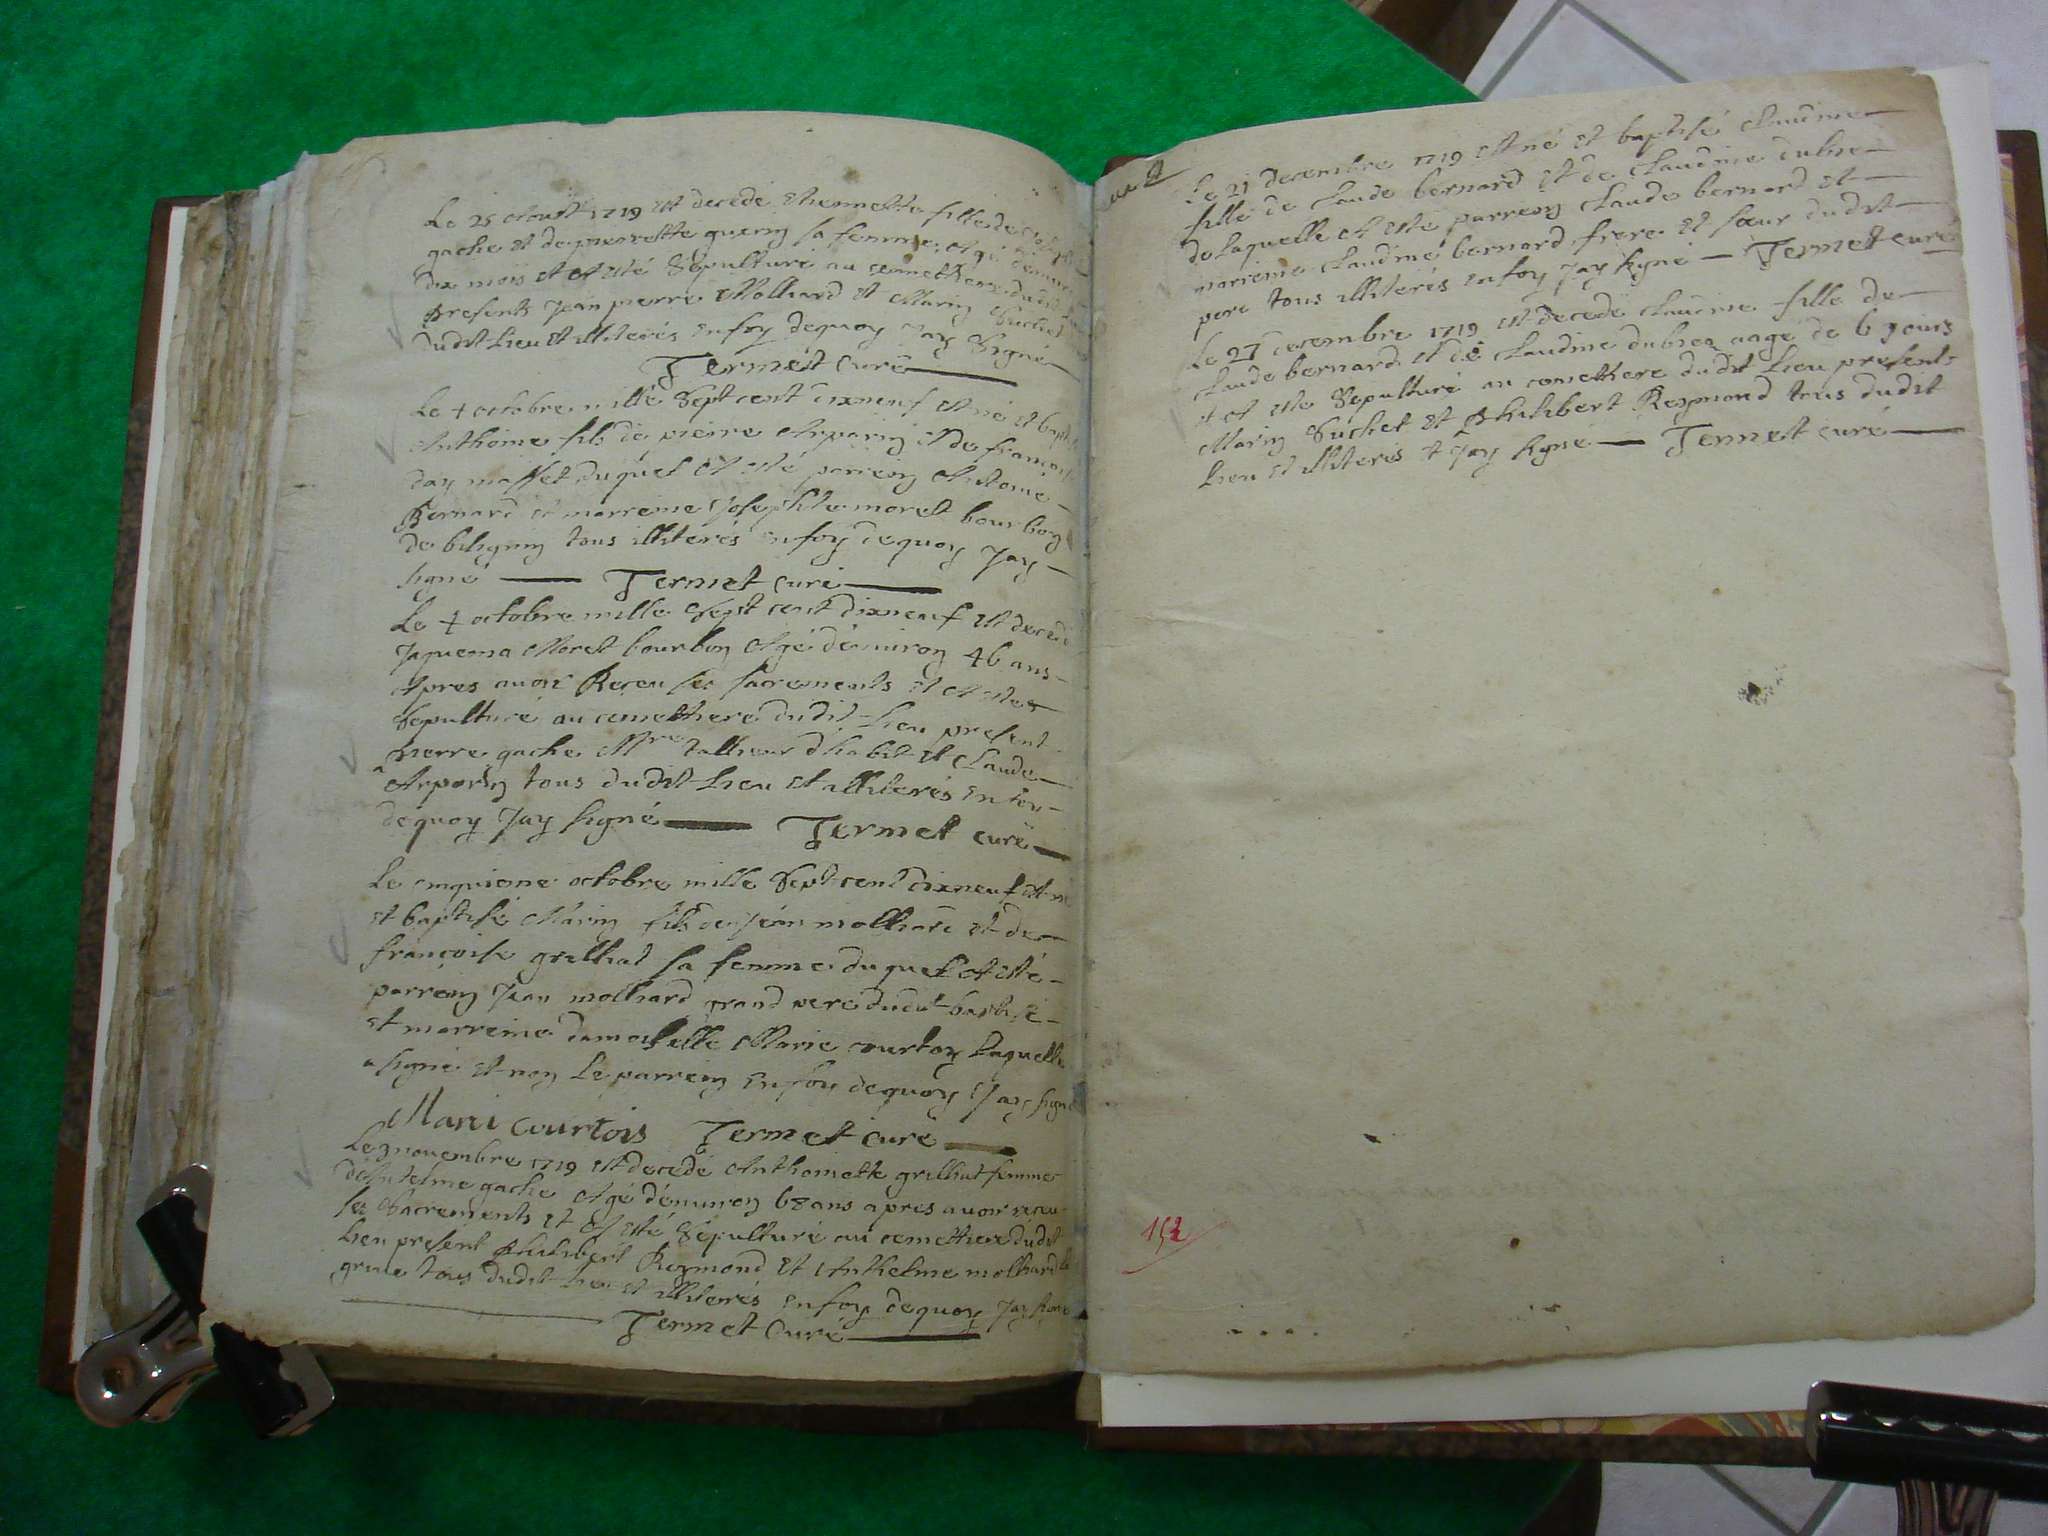 Le 25 Aoust 1719 est decedé Ethiennette fille de
gache et de pierrette guerin sa femme Agé denvir
dix mois et at esté Sepulturé au cemethere dudit
presents Jean pierre Molliard et Marin Suchet
dudit lieu et illiterés en foy dequoy Jay Signé
Termet curé
Le 4 octobre mille Sept cent dixneuf est né et bapt
Anthoine fils de pierre Arparin et de francois
day maffet duquel at esté parrein Antoine
Bernard et marreine Josephte moret bourbon
de bilignin tous illiterés en foy dequoy Jay
signé Termet curé
Le 4 octobre mille Sept cent dixneuf est decedé
Jaquema Moret bourbon Agé denviron 46 ans
Apres avoir Receu ses sacrements et at esté
Sepulturé au cemethere dudit lieu present
pierre gache Mtre tallieur dhabit et Claude
Arparin tous dudit lieu et illiterés en foy
dequoy Jay signé Termet curé
Le cinquieme octobre mille Sept cent dixneuf est né
et baptisé Marin fils de Jean molliard et de
françoise grilliat sa femme duquel at esté
parrein Jean molliard grand pere dudit baptisé
et marreine damoiselle Marie courtoy laquelle
a signé et non le parrein en foy dequoy Jay signé
Marie Courtois Termet curé
Le 3 novembre 1719 est decedé Anthoinette grilliat femme
dAntelme gache Agé denviron 68 ans apres avoir receu
ses Sacrements et at esté Sepulturé au cemethere dudit
lieu present Philibert Reymond et Anthelme molliard
tous dudit lieu et illiterés en foy dequoy Jay signé
Termet curé
Le 21 decembre 1719 est né et baptisé Claudine
fille de Claude bernard et de Claudine dubre
de laquelle at esté parrein Claude bernard et
marreine Claudine bernard frere et soeur dudit
pere tous illiterés en foy Jay signé Termet curé
Le 27 decembre 1719 est decedé Claudine fille de
Claude bernard et de Claudine dubre aagé de 6 jours
et at esté Sepulturé au cemethere dudit lieu presents
Marin Suchet et Philibert Reymond tous dudit
lieu et illiterés et Jay signé Termet curé
152